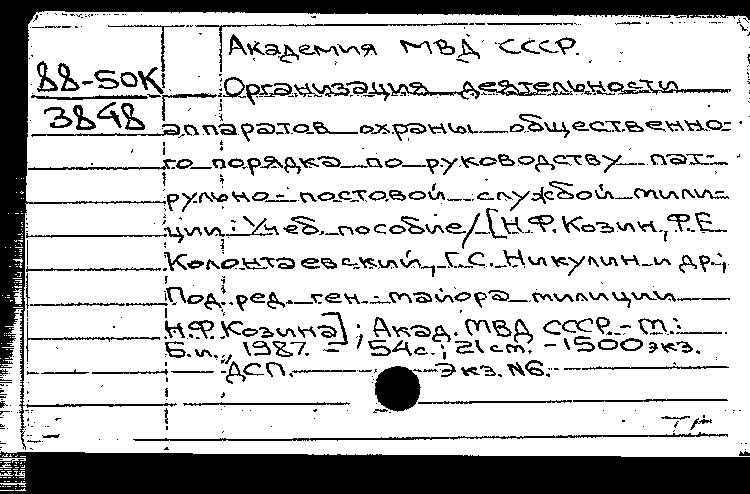 Академия МВД СССР.
88-50К
Организация деятельности
3848
аппаратов охраны общественно-
го порядка по руководству пат-
рульно-постовой службой мили-
ции: Учеб. пособие/[Н.Ф.Козин, Ф.Е.
Колонтаевский, Г.С. Никулин и др.;
Под ред. ген.-майора милиции
Н.Ф.Козина]; Акад. МВД СССР.-М.:
Б.и., 1987. - 54с.; 21см. -1500экз.
ДСП. Экз. №6.